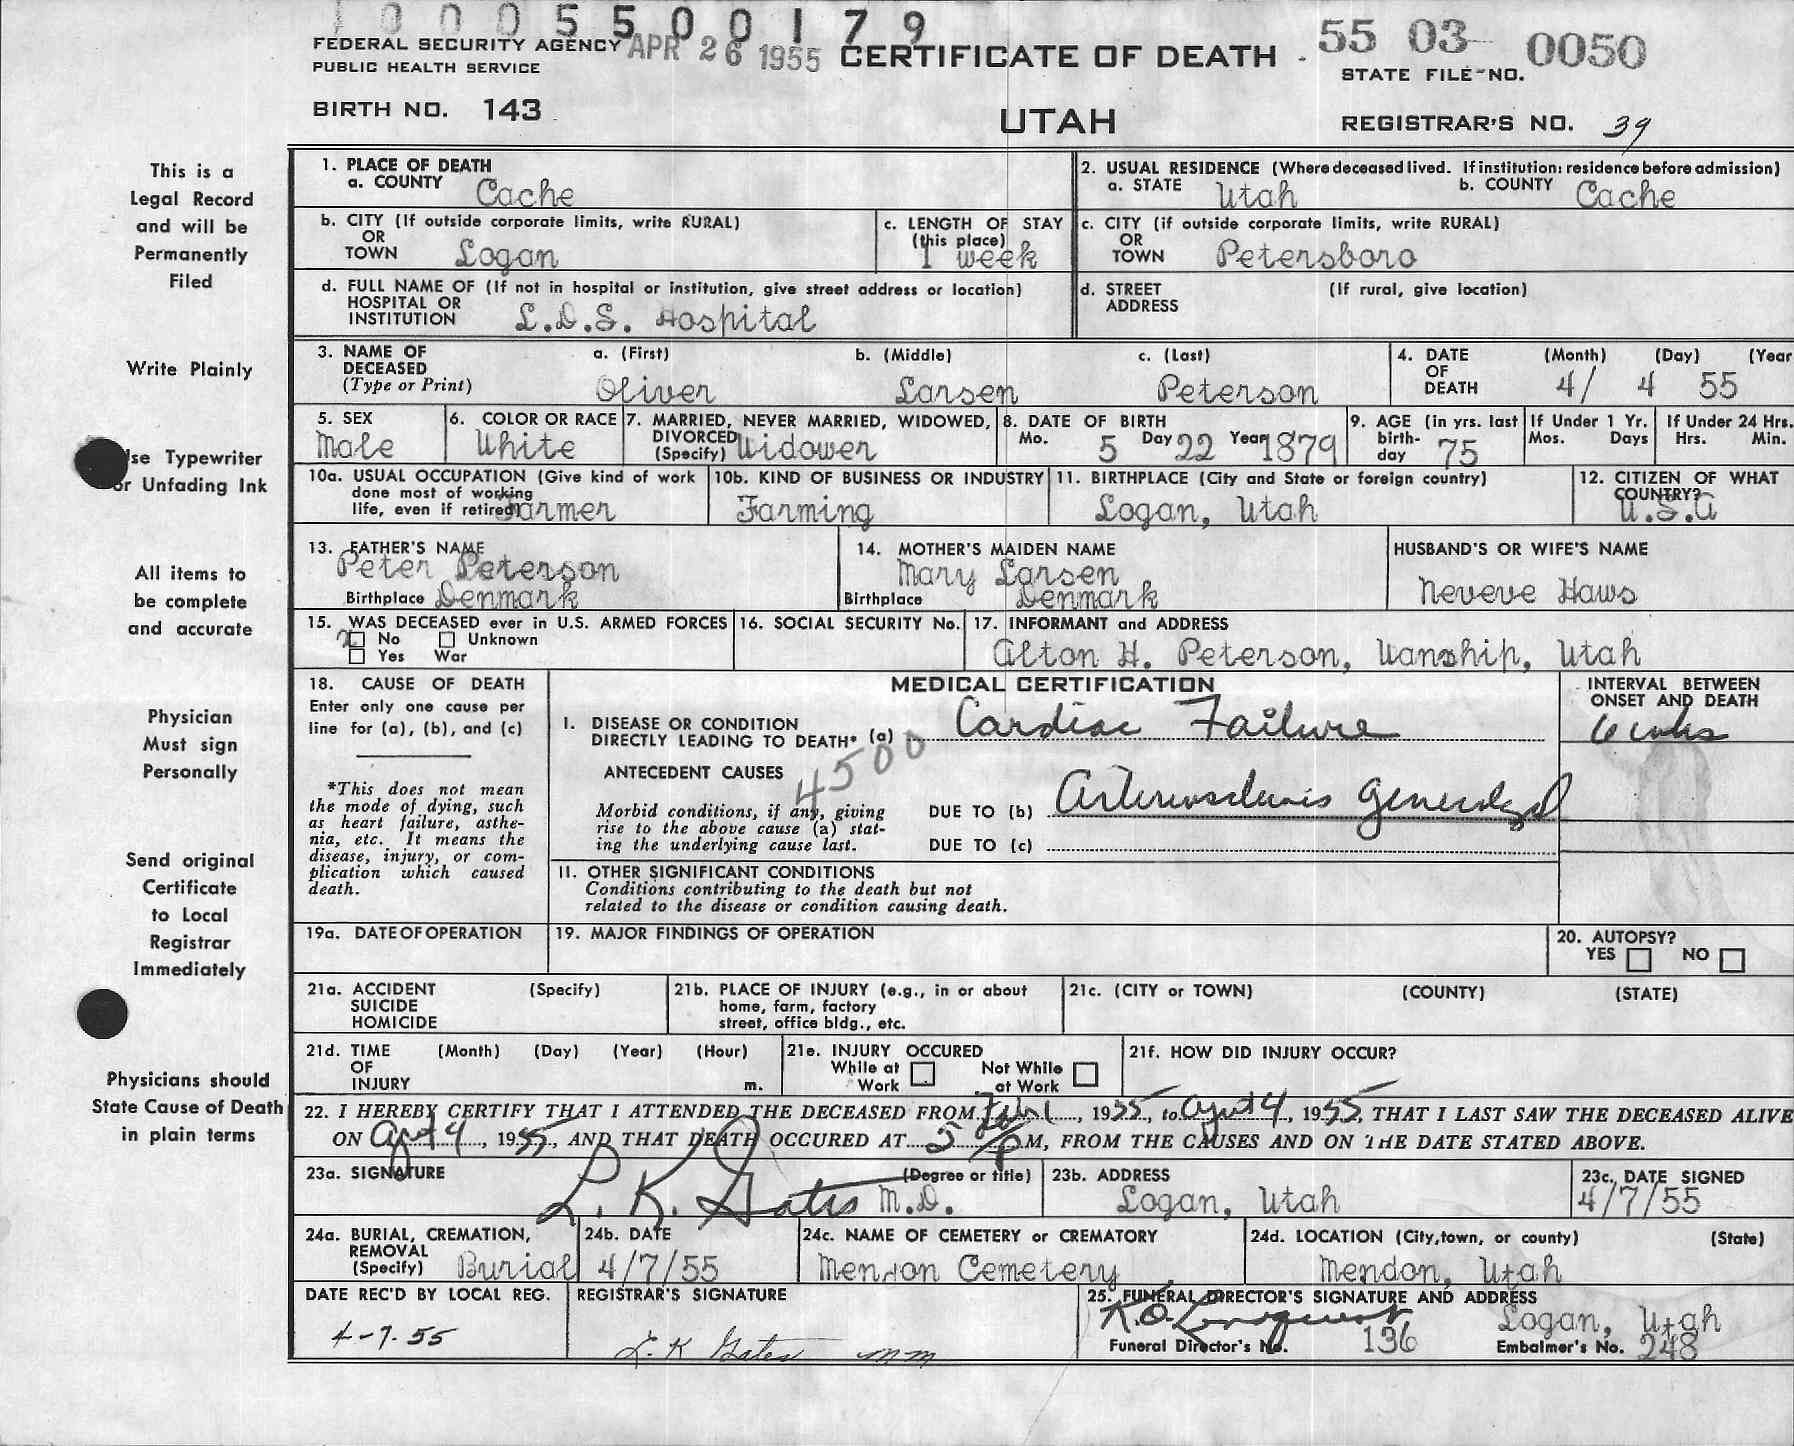 1 0 0 0 5 5 0 0 1 7 9
FEDERAL SECURITY AGENCY APR 26 1955 CERTIFICATE OF DEATH 55 03 0050
PUBLIC HEALTH SERVICE STATE FILE NO.
BIRTH NO. 143 UTAH REGISTRAR'S NO. 39
This is a
Legal Record
and will be
Permanently
Filed
Write Plainly
se Typewriter
or Unfading Ink
All items to
be complete
and accurate
Physician
Must sign
Personally
Send original
Certificate
to Local
Registrar
Immediately
Physicians should
State Cause of Death
in plain terms
1. PLACE OF DEATH
a. COUNTY Cache
2. USUAL RESIDENCE (Where deceased lived. If institution: residence before admission)
a. STATE Utah b. COUNTY Cache
b. CITY (If outside corporate limits, write RURAL)
OR
TOWN Logan
c. LENGTH OF STAY
(this place)
1 week
c. CITY (if outside corporate limits, write RURAL)
OR
TOWN Petersboro
d. FULL NAME OF (If not in hospital or institution, give street address or location)
HOSPITAL OR
INSTITUTION L.D.S. Hospital
d. STREET (If rural, give location)
ADDRESS
3. NAME OF a. (First) b. (Middle) c. (Last)
DECEASED
(Type or Print) Oliver Larsen Peterson
4. DATE (Month) (Day) (Year
OF
DEATH 4/ 4 55
5. SEX
Male
6. COLOR OR RACE
White
7. MARRIED, NEVER MARRIED, WIDOWED,
DIVORCED
(Specify) Widower
8. DATE OF BIRTH
Mo. 5 Day 22 Year 1879
9. AGE (in yrs. last
birth-
day 75
If Under 1 Yr.
Mos. Days
If Under 24 Hrs.
Hrs. Min.
10a. USUAL OCCUPATION (Give kind of work
done most of working
life, even if retired) Farmer
10b. KIND OF BUSINESS OR INDUSTRY
Farming
11. BIRTHPLACE (City and State or foreign country)
Logan, Utah
12. CITIZEN OF WHAT
COUNTRY?
U.S.A
13. FATHER'S NAME
Peter Peterson
Birthplace Denmark
14. MOTHER'S MAIDEN NAME
Mary Larsen
Birthplace Denmark
HUSBAND'S OR WIFE'S NAME
Neveve Haws
15. WAS DECEASED ever in U.S. ARMED FORCES
X No Unknown
Yes War
16. SOCIAL SECURITY No.
17. INFORMANT and ADDRESS
Alton H. Peterson, Wanship, Utah
18. CAUSE OF DEATH
Enter only one cause per
line for (a), (b), and (c)
*This does not mean
the mode of dying, such
as heart failure, asthe-
nia, etc. It means the
disease, injury, or com-
plication which caused
death.
MEDICAL CERTIFICATION
I. DISEASE OR CONDITION
DIRECTLY LEADING TO DEATH* (a) Cardiac Failure
4500
ANTECEDENT CAUSES
Morbid conditions, if any, giving
rise to the above cause (a) stat-
ing the underlying cause last.
DUE TO (b) Arteriosclerosis generalized
DUE TO (c)
INTERVAL BETWEEN
ONSET AND DEATH
6 wks
11. OTHER SIGNIFICANT CONDITIONS
Conditions contributing to the death but not
related to the disease or condition causing death.
19a. DATE OF OPERATION
19. MAJOR FINDINGS OF OPERATION
20. AUTOPSY?
YES NO
21a. ACCIDENT (Specify)
SUICIDE
HOMICIDE
21b. PLACE OF INJURY (e.g., in or about
home, farm, factory
street, office bldg., etc.
21c. (CITY or TOWN) (COUNTY) (STATE)
21d. TIME (Month) (Day) (Year) (Hour)
OF
INJURY m.
21e. INJURY OCCURED
While at Not While
Work at Work
21f. HOW DID INJURY OCCUR?
22. I HEREBY CERTIFY THAT I ATTENDED THE DECEASED FROM Feb 1, 1955, to Aprl 4, 1955, THAT I LAST SAW THE DECEASED ALIVE
ON Aprl 4, 1955, AND THAT DEATH OCCURED AT 5 P M, FROM THE CAUSES AND ON THE DATE STATED ABOVE.
23a. SIGNATURE (Degree or title)
L. K. Gates M.D.
23b. ADDRESS
Logan, Utah
23c. DATE SIGNED
4/7/55
24a. BURIAL, CREMATION,
REMOVAL
(Specify) Burial
24b. DATE
4/7/55
24c. NAME OF CEMETERY or CREMATORY
Mendon Cemetery
24d. LOCATION (City, town, or county) (State)
Mendon, Utah
DATE REC'D BY LOCAL REG.
4-7-55
REGISTRAR'S SIGNATURE
L. K Gates mm
25. FUNERAL DIRECTOR'S SIGNATURE AND ADDRESS
K.O. Lindquist Logan, Utah
Funeral Director's No. 136 Embalmer's No. 248